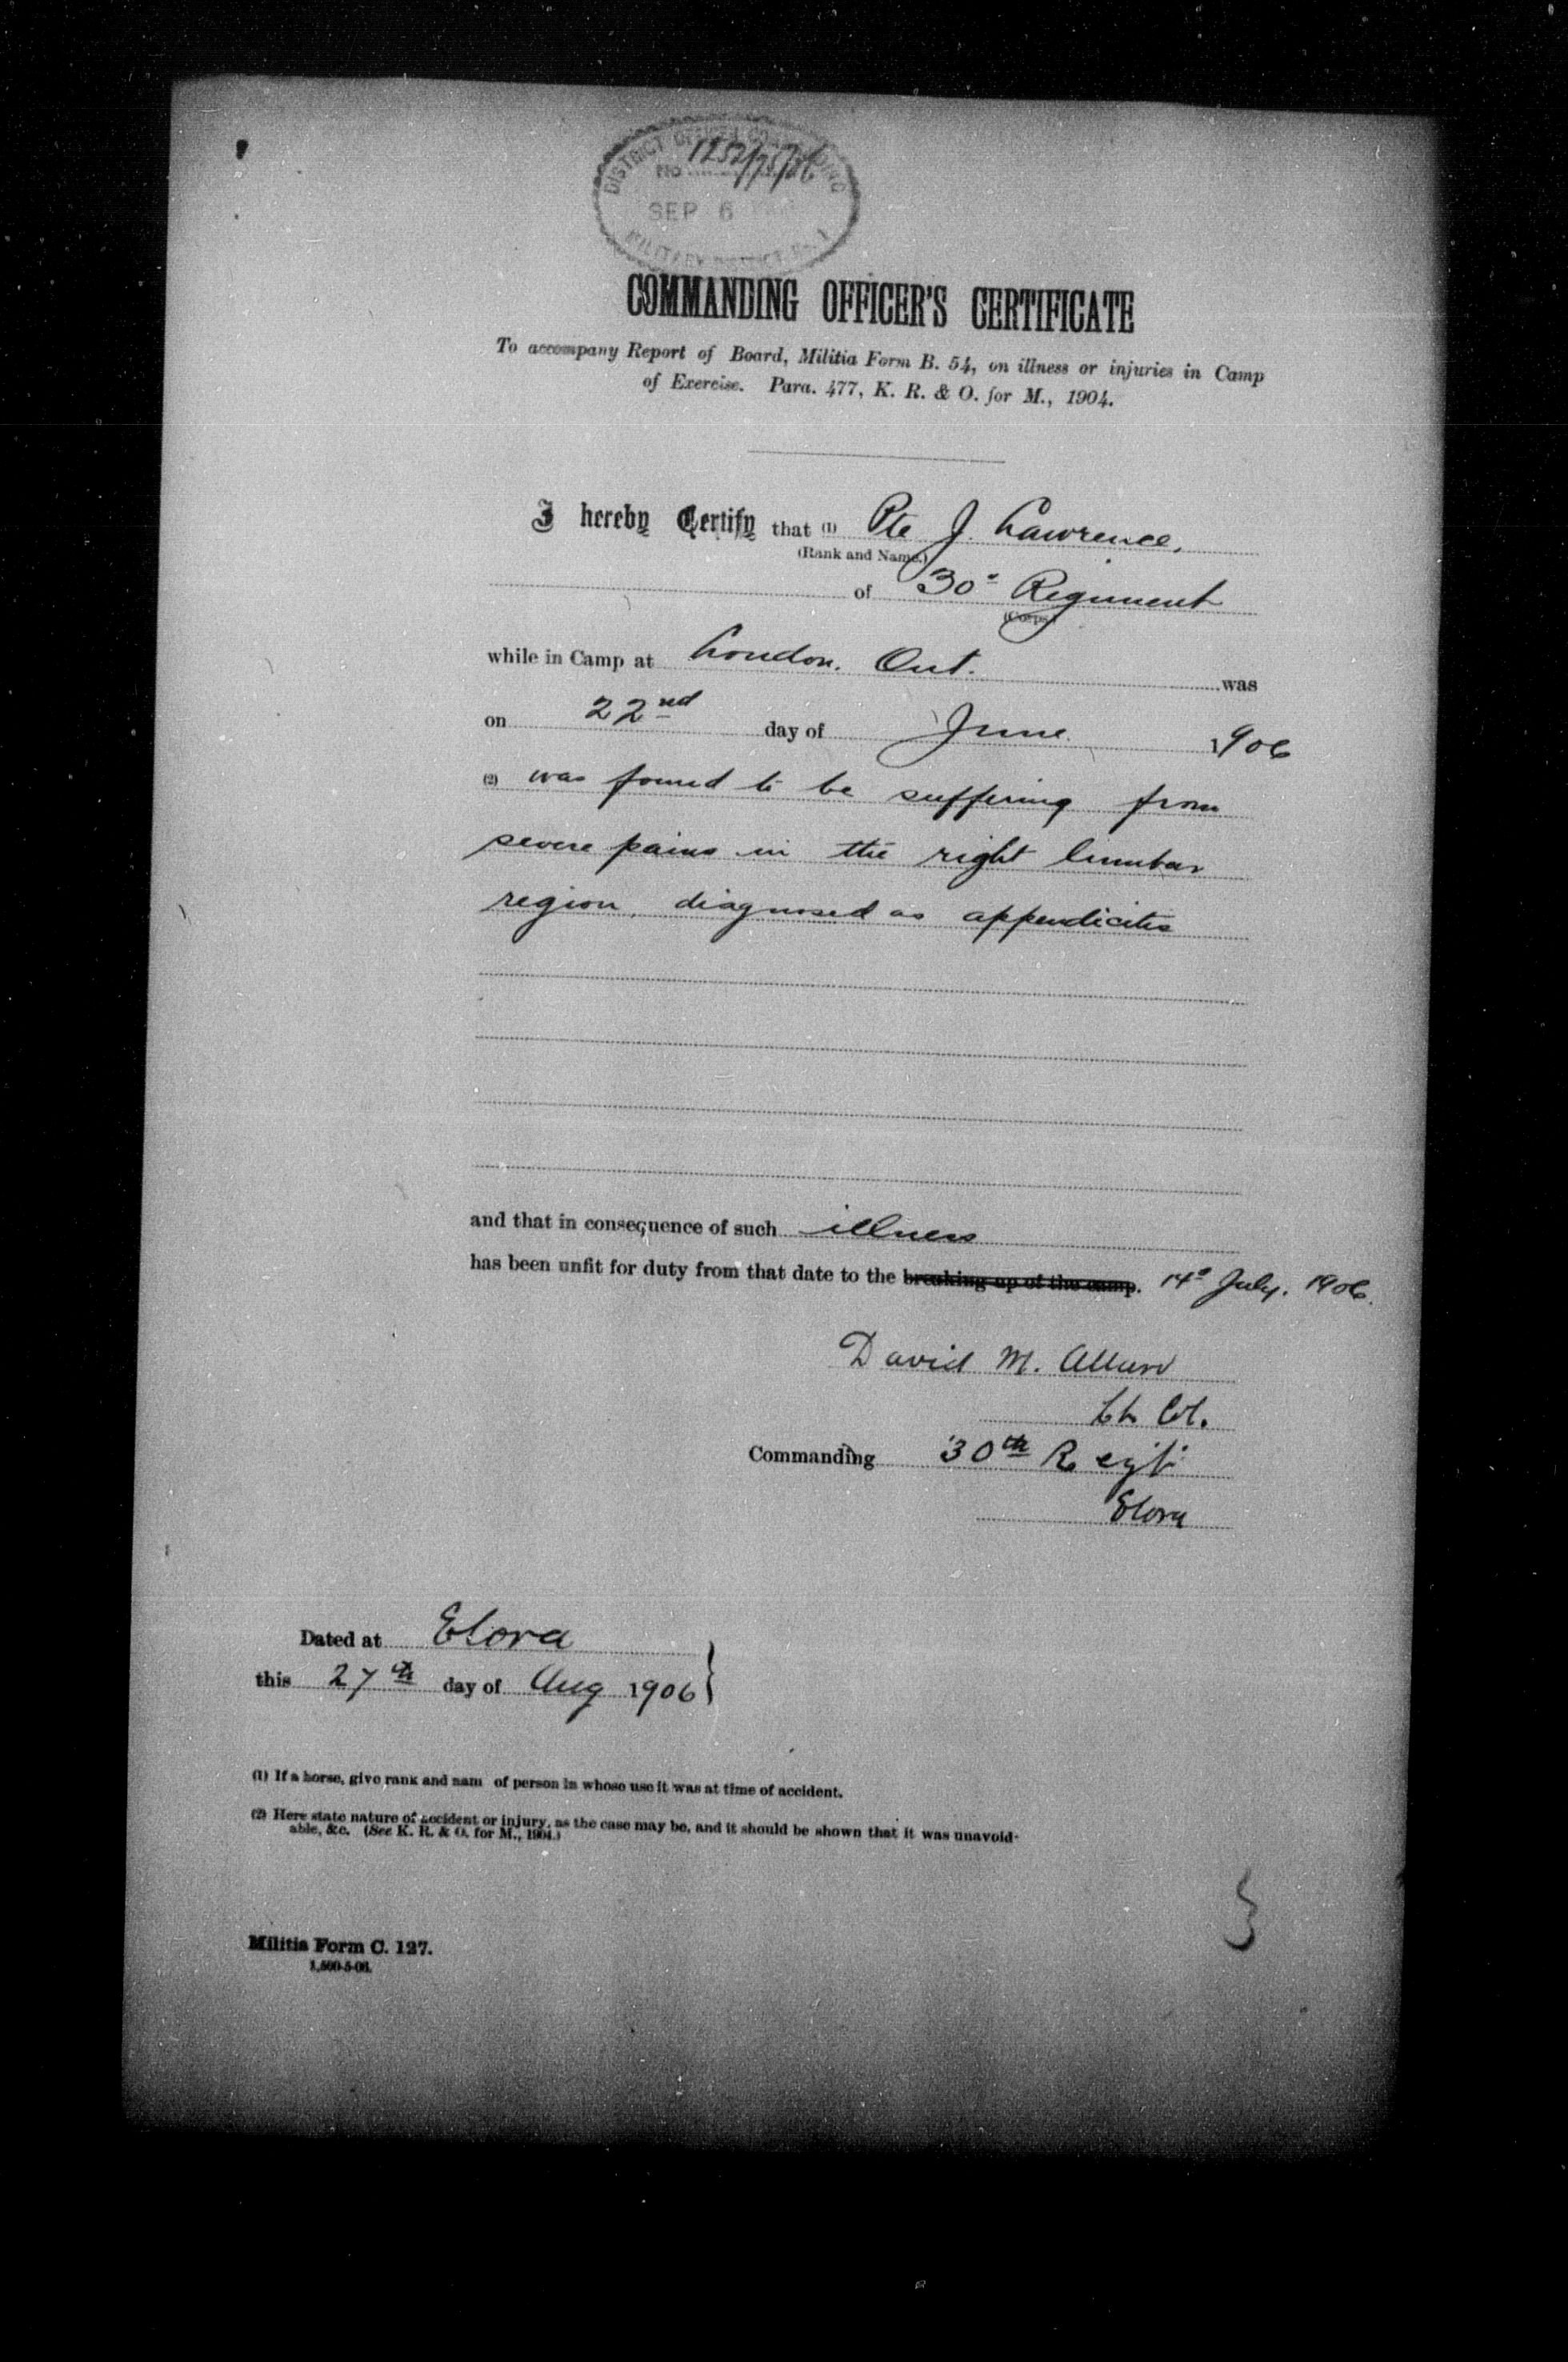 DISTRICT OFFICER COMMANDING
No 1252/75/06
SEP 6
MILITARY DISTRICT No. 1
COMMANDING OFFICER'S CERTIFICATE
To accompany Report of Board, Militia Form B. 54, on illness or injuries in Camp
of Exercise. Para. 477, K. R. & O. for M., 1904.
I hereby Certify that (1) Pte J. Lawrence,
(Rank and Name.)
of 30º Regiment
(Corps.)
while in Camp at London. Ont. was
on 22nd day of June 1906
(2) was found to be suffering from
severe pains in the right lumbar
region, diagnosed as appendicitis
and that in consequence of such illness
has been unfit for duty from that date to the breaking up of the camp. 14º July. 1906.
David M. Allan
Lt Col.
Commanding 30th Regt
Elora
Dated at Elora
this 27th day of Aug 1906 }
(1) If a horse, give rank and nam of person in whose use it was at time of accident.
(2) Here state nature of accident or injury, as the case may be, and it should be shown that it was unavoid-
able, &c. (See K. R. & O. for M., 1904.)
Militia Form C. 127.
1,500-5-06.